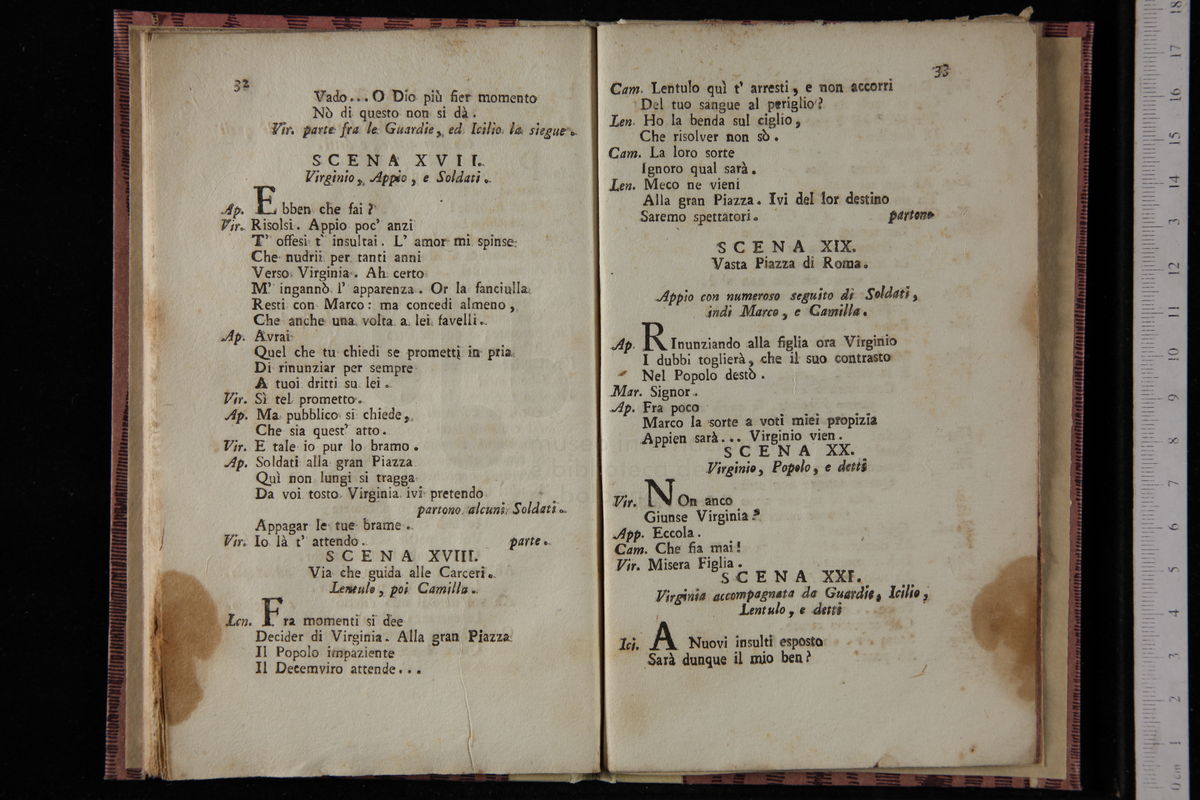 32
Vado... O Dio più fier momento
Nò di questo non si dà.
Vir. parte fra le Guardie, ed Icilio la siegue.
SCENA XVII.
Virginio, Appio, e Soldati.
Ap. Ebben che fai?
Vir. Risolsi. Appio poc' anzi
T' offesi t' insultai. L' amor mi spinse
Che nudrii per tanti anni
Verso Virginia. Ah certo
M' ingannò l' apparenza. Or la fanciulla
Resti con Marco: ma concedi almeno,
Che anche una volta a lei favelli.
Ap. Avrai
Quel che tu chiedi se prometti in pria
Di rinunziar per sempre
A tuoi dritti su lei.
Vir. Sì tel prometto.
Ap. Ma pubblico si chiede,
Che sia quest' atto.
Vir. E tale io pur lo bramo.
Ap. Soldati alla gran Piazza
Quì non lungi si tragga
Da voi tosto Virginia ivi pretendo
partono alcuni Soldati.
Appagar le tue brame.
Vir. Io là t' attendo. parte.
SCENA XVIII.
Via che guida alle Carceri.
Lentulo, poi Camilla.
Len. Fra momenti si dee
Decider di Virginia. Alla gran Piazza
Il Popolo impaziente
Il Decemviro attende...
33
Cam. Lentulo quì t' arresti, e non accorri
Del tuo sangue al periglio?
Len. Ho la benda sul ciglio,
Che risolver non sò.
Cam. La loro sorte
Ignoro qual sarà.
Len. Meco ne vieni
Alla gran Piazza. Ivi del lor destino
Saremo spettatori. partono
SCENA XIX.
Vasta Piazza di Roma.
Appio con numeroso seguito di Soldati,
indi Marco, e Camilla.
Ap. RInunziando alla figlia ora Virginio
I dubbi toglierà, che il suo contrasto
Nel Popolo destò.
Mar. Signor.
Ap. Fra poco
Marco la sorte a voti miei propizia
Appien sarà... Virginio vien.
SCENA XX.
Virginio, Popolo, e detti
Vir. NOn anco
Giunse Virginia?
App. Eccola.
Cam. Che fia mai!
Vir. Misera Figlia.
SCENA XXI.
Virginia accompagnata da Guardie, Icilio,
Lentulo, e detti
Ici. A Nuovi insulti esposto
Sarà dunque il mio ben?
0 cm 1 2 3 4 5 6 7 8 9 10 11 12 13 14 15 16 17 18